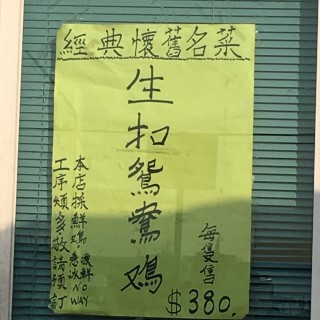 經典懷舊名菜
生扣鴛鴦鴂
每隻售
$380.
本店採鮮鴂,濃鮮
急冰NO WAY
工序煩多敬請預訂